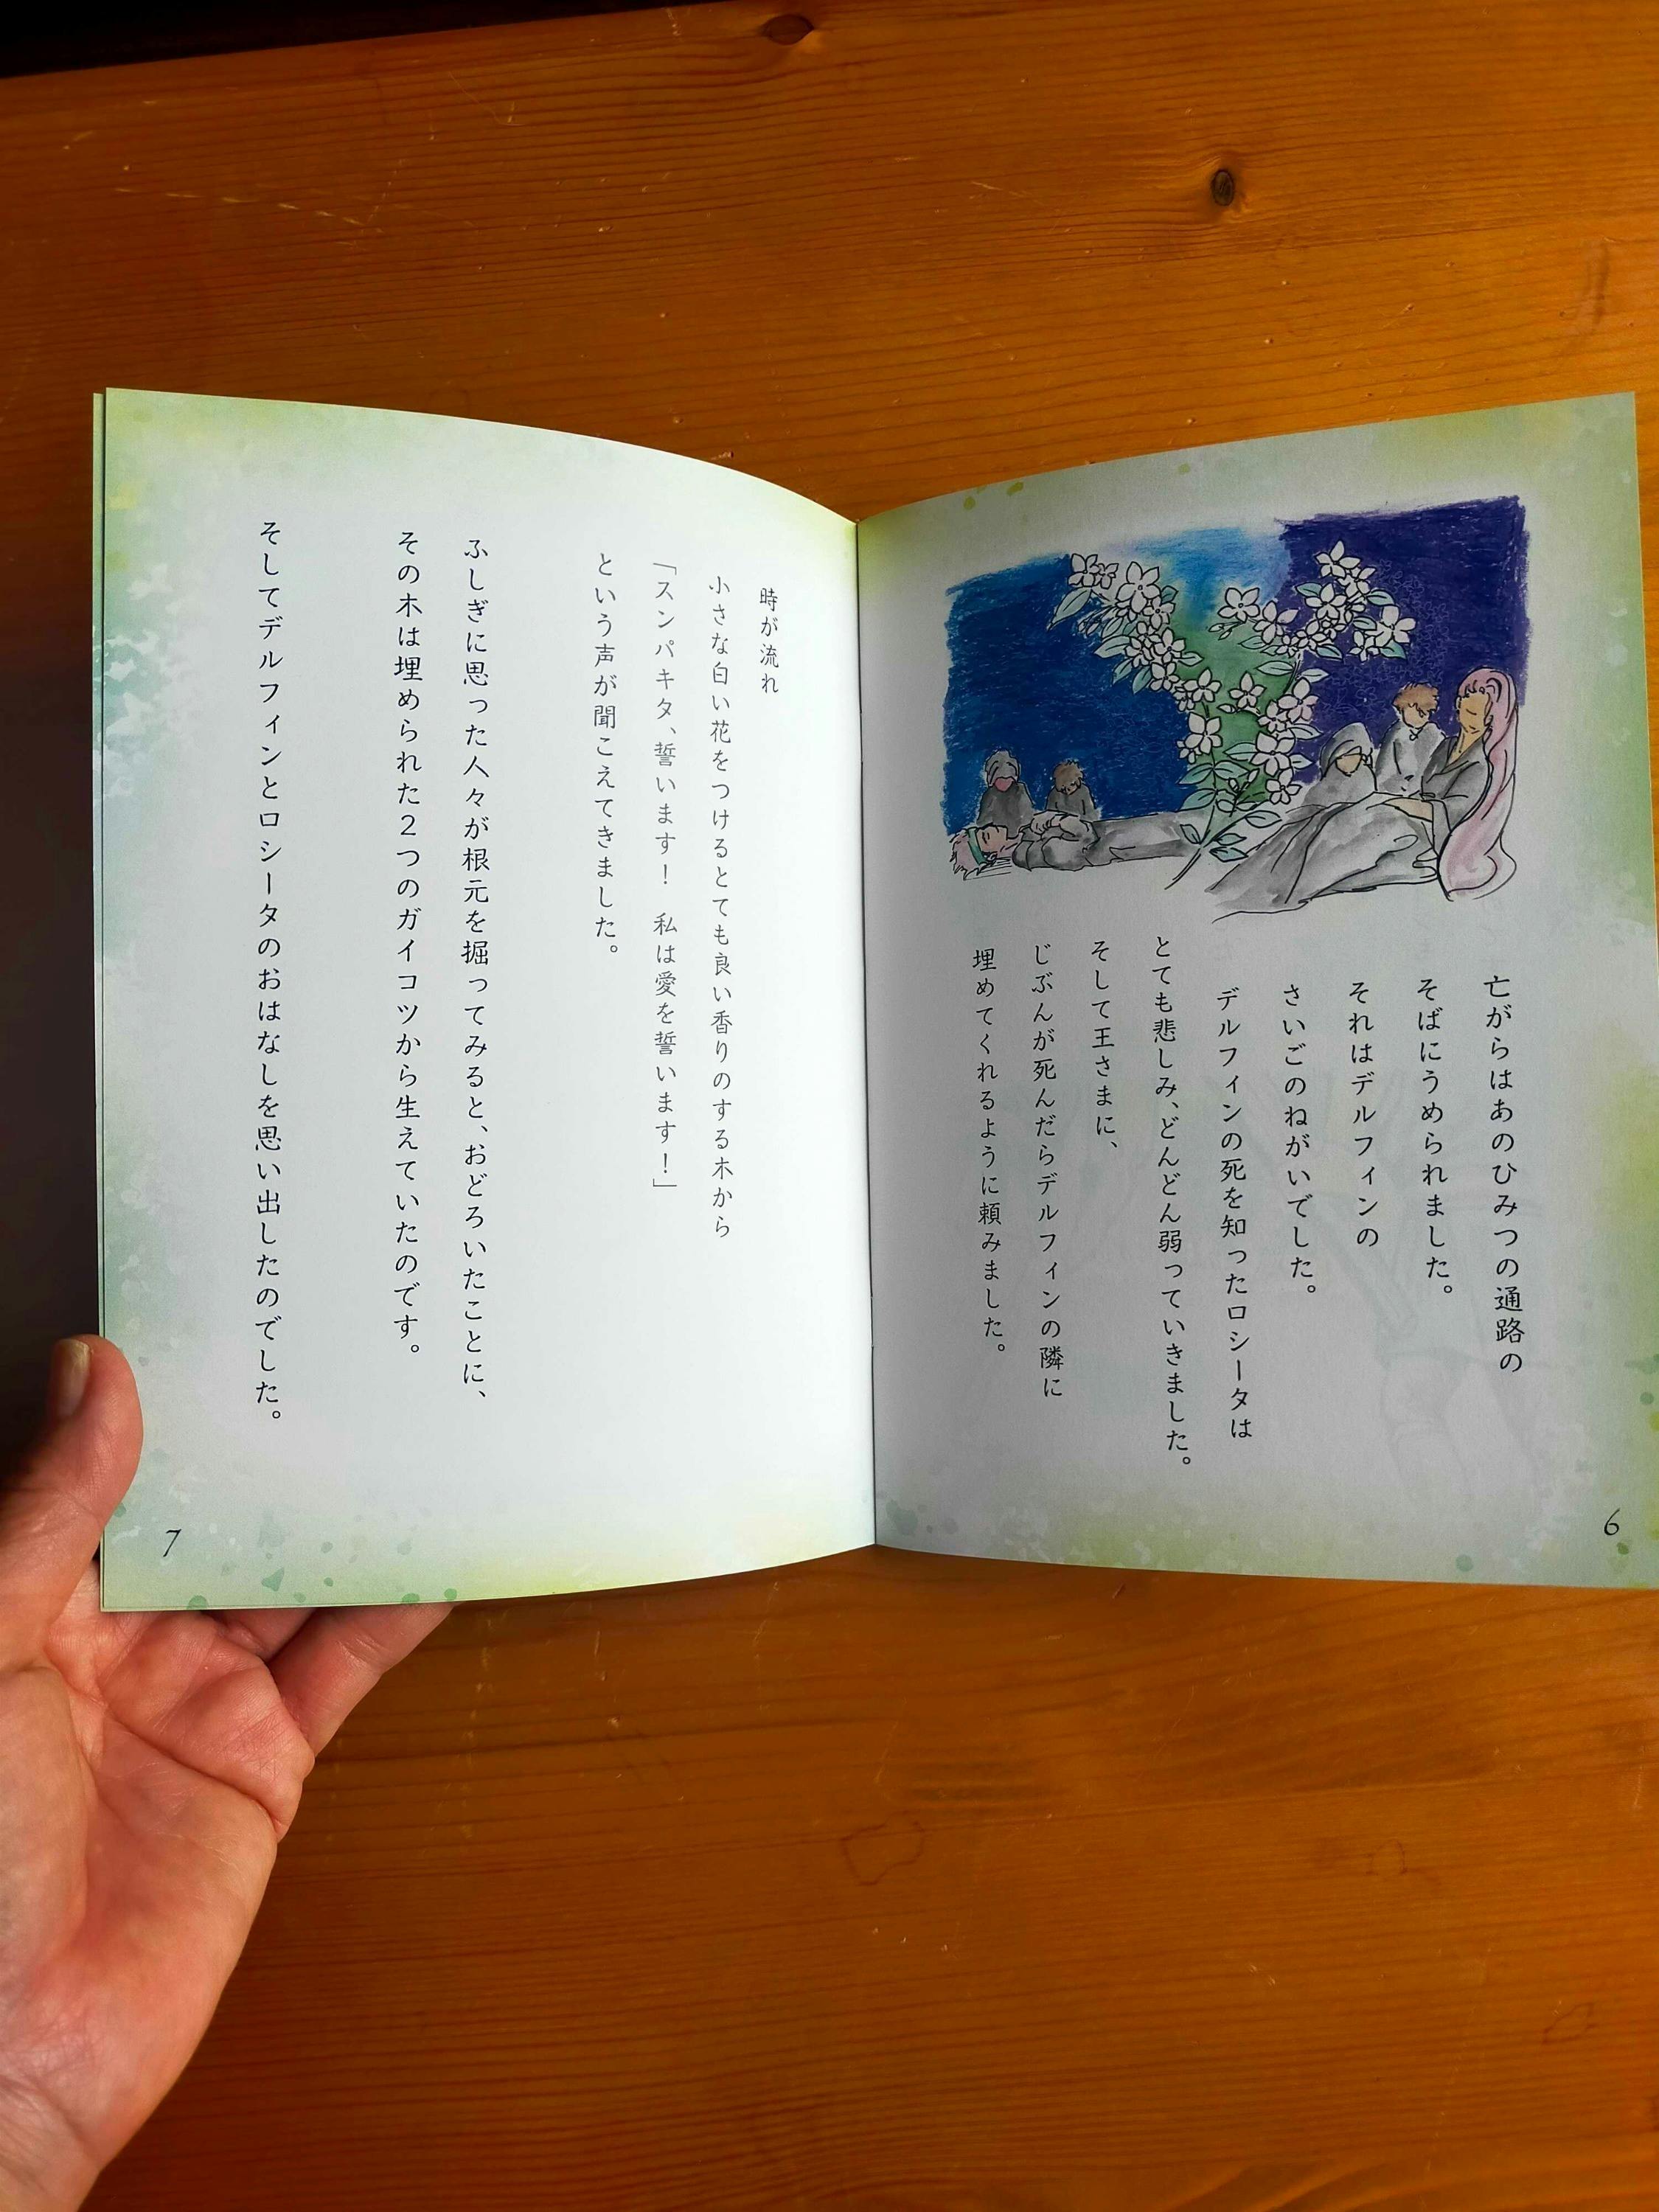 亡がらはあのひみつの通路の
そばにうめられました。
それはデルフィンの
さいごのねがいでした。
デルフィンの死を知ったロシータは
とても悲しみ、どんどん弱っていきました。
そして王さまに、
じぶんが死んだらデルフィンの隣に
埋めてくれるように頼みました。
6
時が流れ
小さな白い花をつけるとても良い香りのする木から
「スンパキタ、誓います！　私は愛を誓います！」
という声が聞こえてきました。
ふしぎに思った人々が根元を掘ってみると、おどろいたことに、
その木は埋められた2つのガイコツから生えていたのです。
そしてデルフィンとロシータのおはなしを思い出したのでした。
7